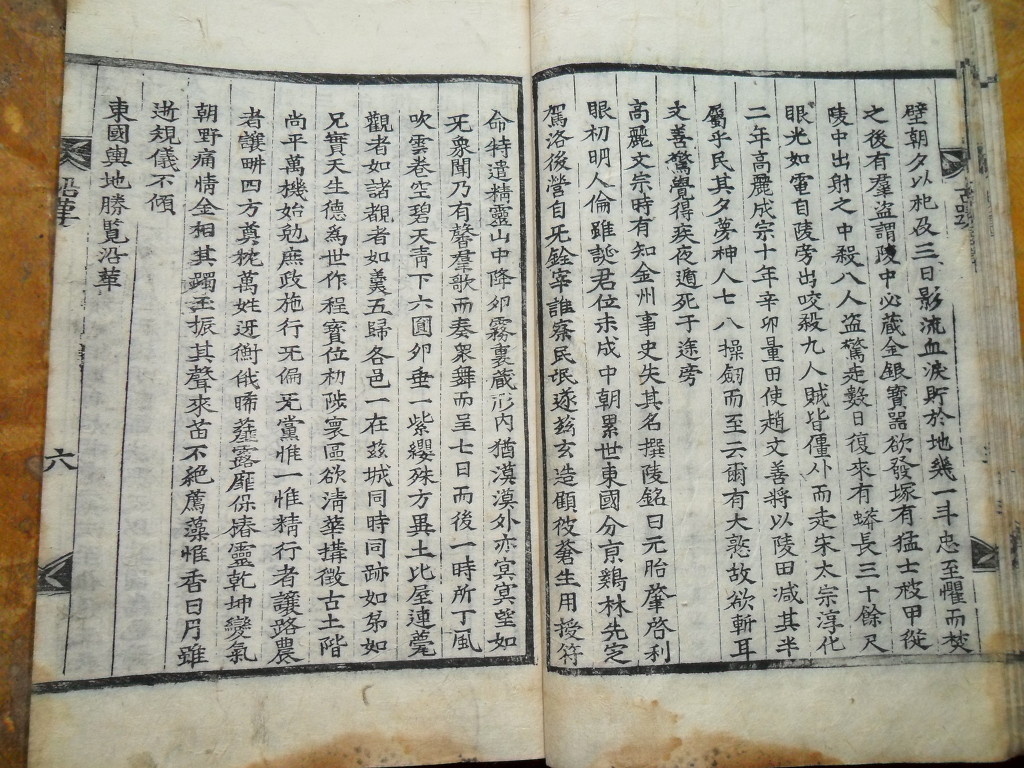 壁朝夕以祀及三日影流血淚貯於地幾一斗忠至懼而焚
之後有羣盜謂陵中必藏金銀寶器欲發塚有猛士被甲從
陵中出射之中殺八人盜驚走數日復來有蟒長三十餘尺
眼光如電自陵旁出咬殺九人賊皆僵仆而走宋太宗淳化
二年高麗成宗十年辛卯量田使趙文善將以陵田减其半
屬乎民其夕夢神人七八操劒而至云爾有大憝故欲斬耳
文善驚覺得疾夜遁死于途旁
高麗文宗時有知金州事史失其名撰陵銘曰元胎肇啓利
眼初明人倫雖誕君位未成中朝累世東國分亰鷄林先定
駕洛後營自旡銓宰誰察民氓遂玆玄造顧彼蒼生用授符
命特遣精靈山中降卵霧裏藏形內猶漠漠外亦冥冥望如
旡衆聞乃有聲羣歌而奏衆舞而呈七日而後一時所丁風
吹雲卷空碧天靑下六圓卵垂一紫纓殊方異土比屋連甍
觀者如諸覩者如羹五歸各邑一在玆城同時同跡如弟如
兄實天生德爲世作程寶位初陟寰區欲淸華搆徵古土階
尚平萬機始勉庶政施行旡偏旡黨惟一惟精行者讓路農
者讓畊四方奠枕萬姓迓衡俄晞薤露靡保椿靈乾坤變氣
朝野痛情金相其躅玉振其聲來苗不絶薦藻惟香日月雖
逝䂓儀不傾
東國輿地勝覽沿革
六